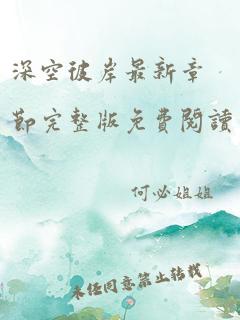 深空彼岸最新章
節完整版免費閱讀
何必姐姐
未经同意禁止转载